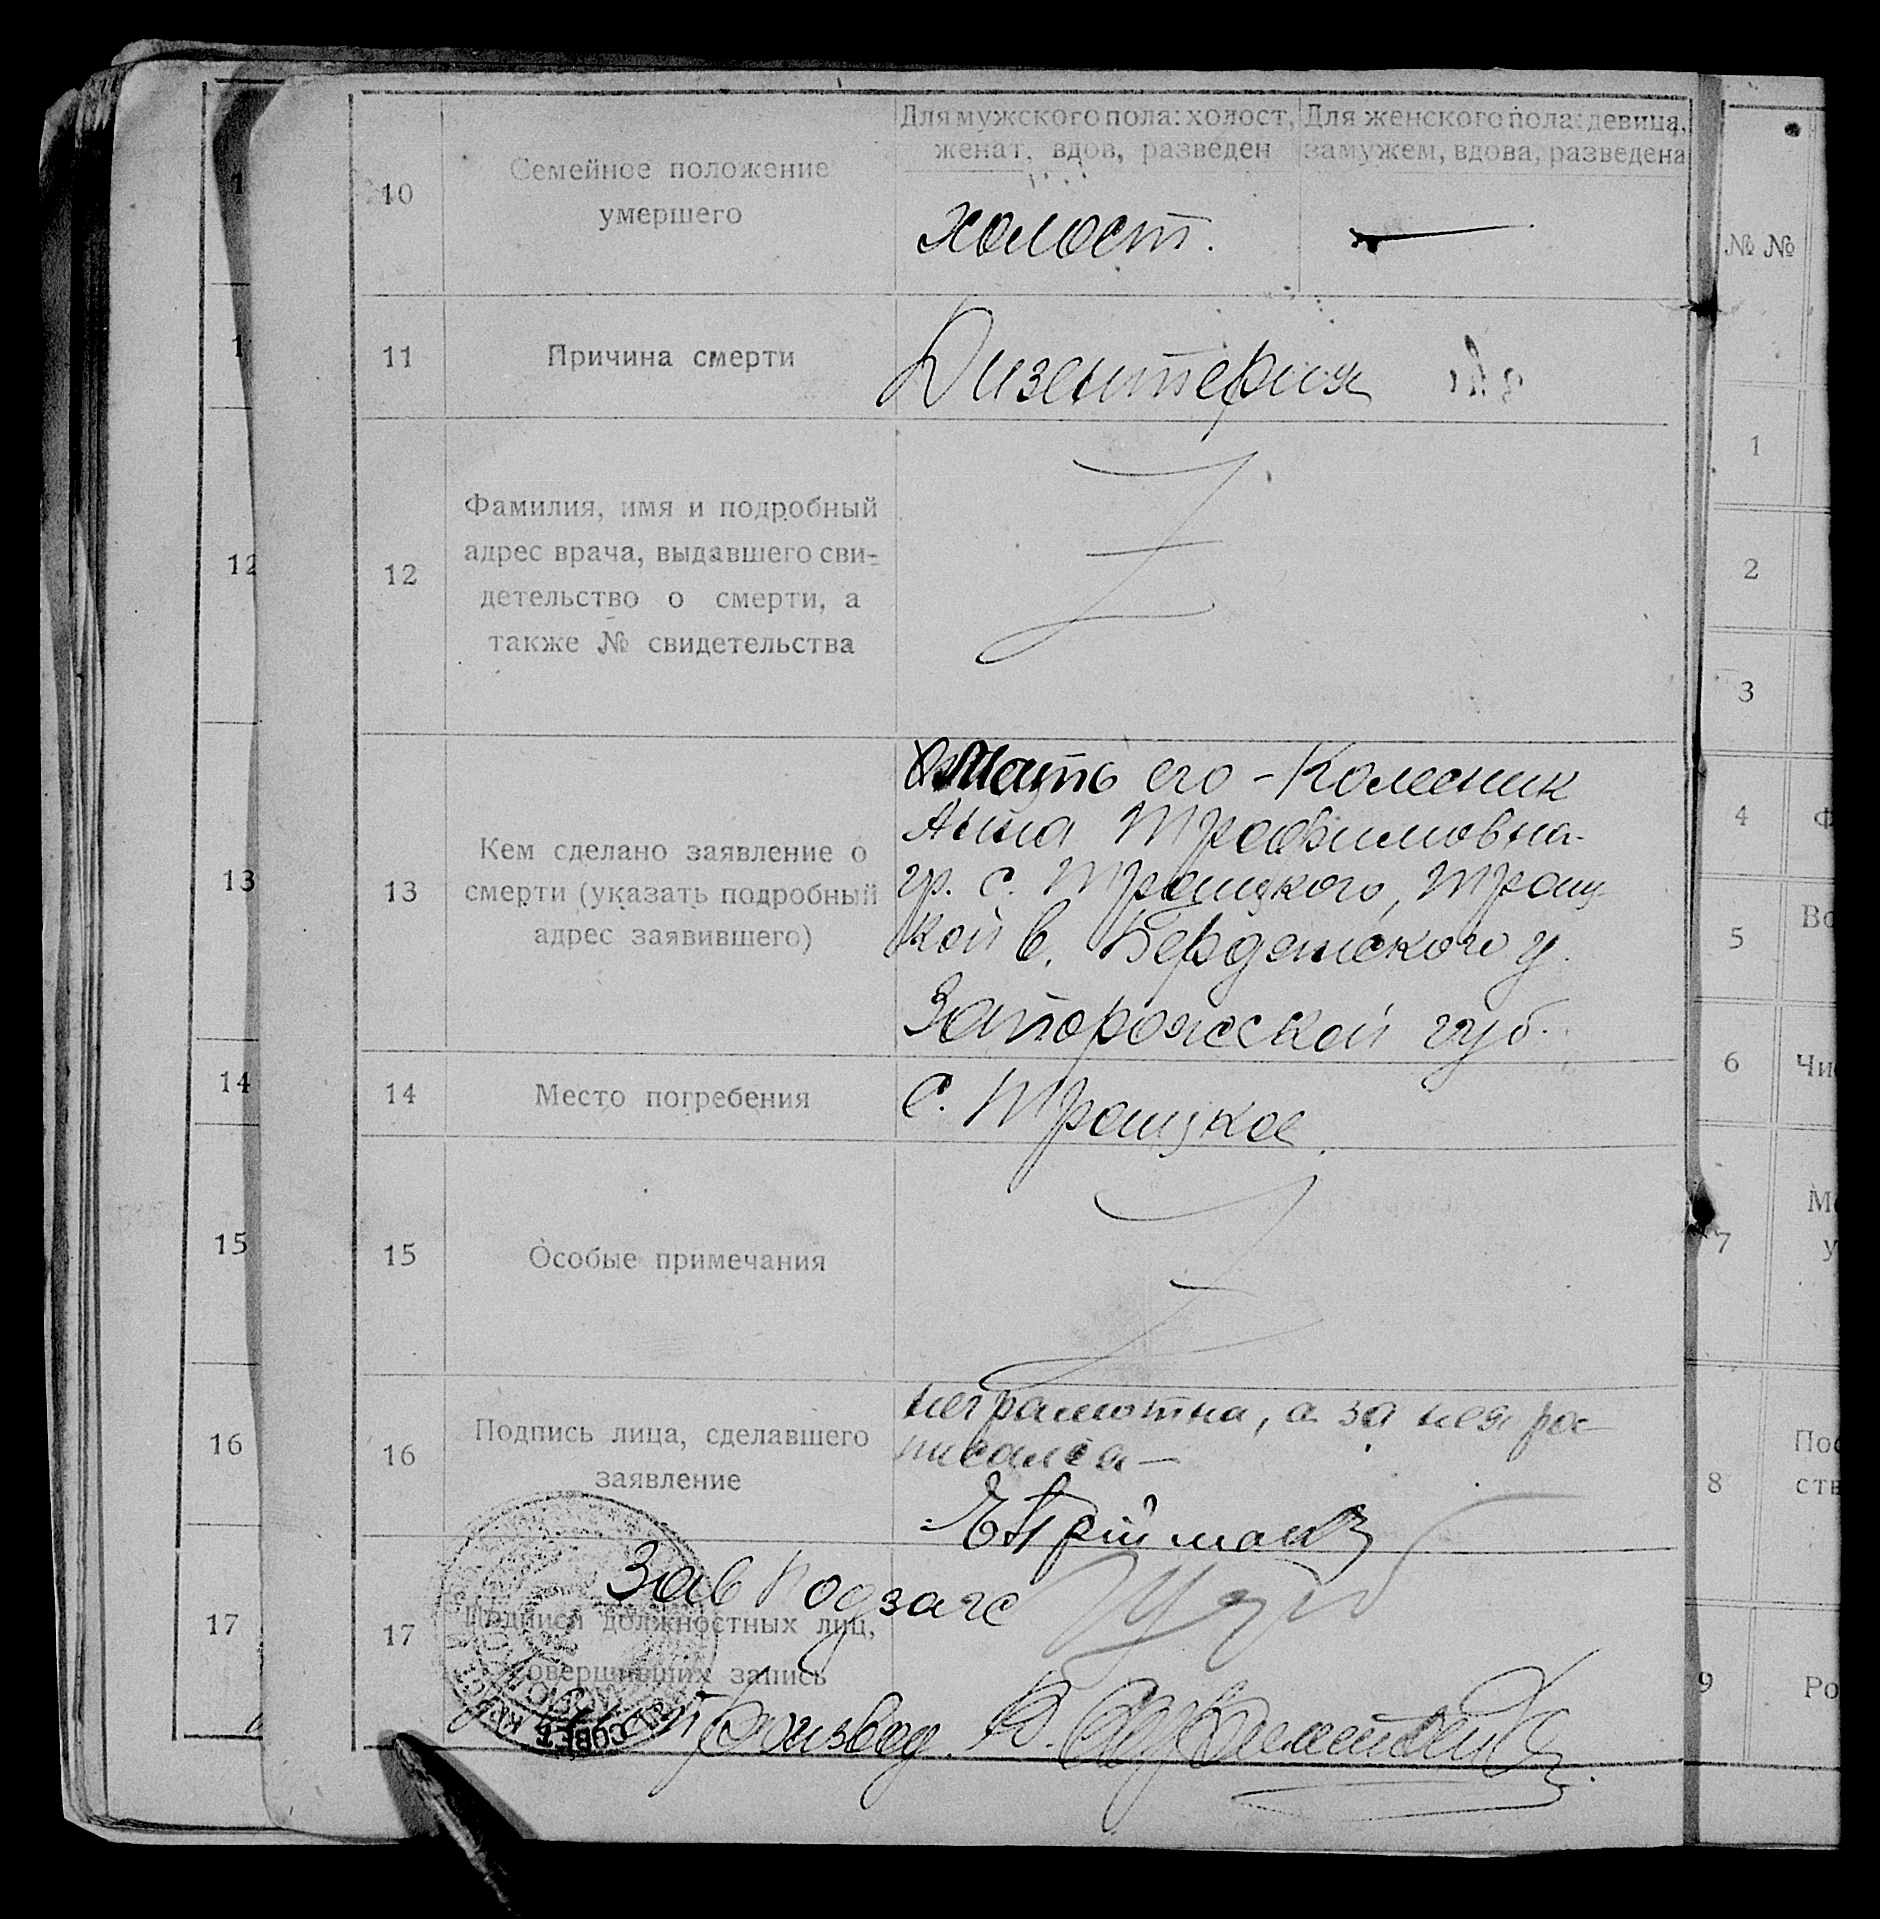 10
Семейное положение
умершего
Для мужского пола: холост,
женат, вдов, разведен
Для женского пола: девица,
замужем, вдова, разведена
холост.
11
Причина смерти
Дизентерия
12
Фамилия, имя и подробный
адрес врача, выдавшего сви-
детельство о смерти, а
также № свидетельства
13
Кем сделано заявление о
смерти (указать подробный
адрес заявившего)
Мать его - Колесник
Анна Трофимовна-
гр. с. Троицкого, Троиц
кой в. Бердянского у.
Запорожской губ.
14
Место погребения
С. Троицкое
15
Особые примечания
16
Подпись лица, сделавшего
заявление
неграмотна, а за нея рос-
писался —
17
Подписи должностных лиц,
совершивших запись
Зав Подзагс
производ.
12
13
14
15
16
17
№ №
1
2
3
4
Ф
5
Во
6
Чи
7
М
у
8
Пос
ств
9
Ро